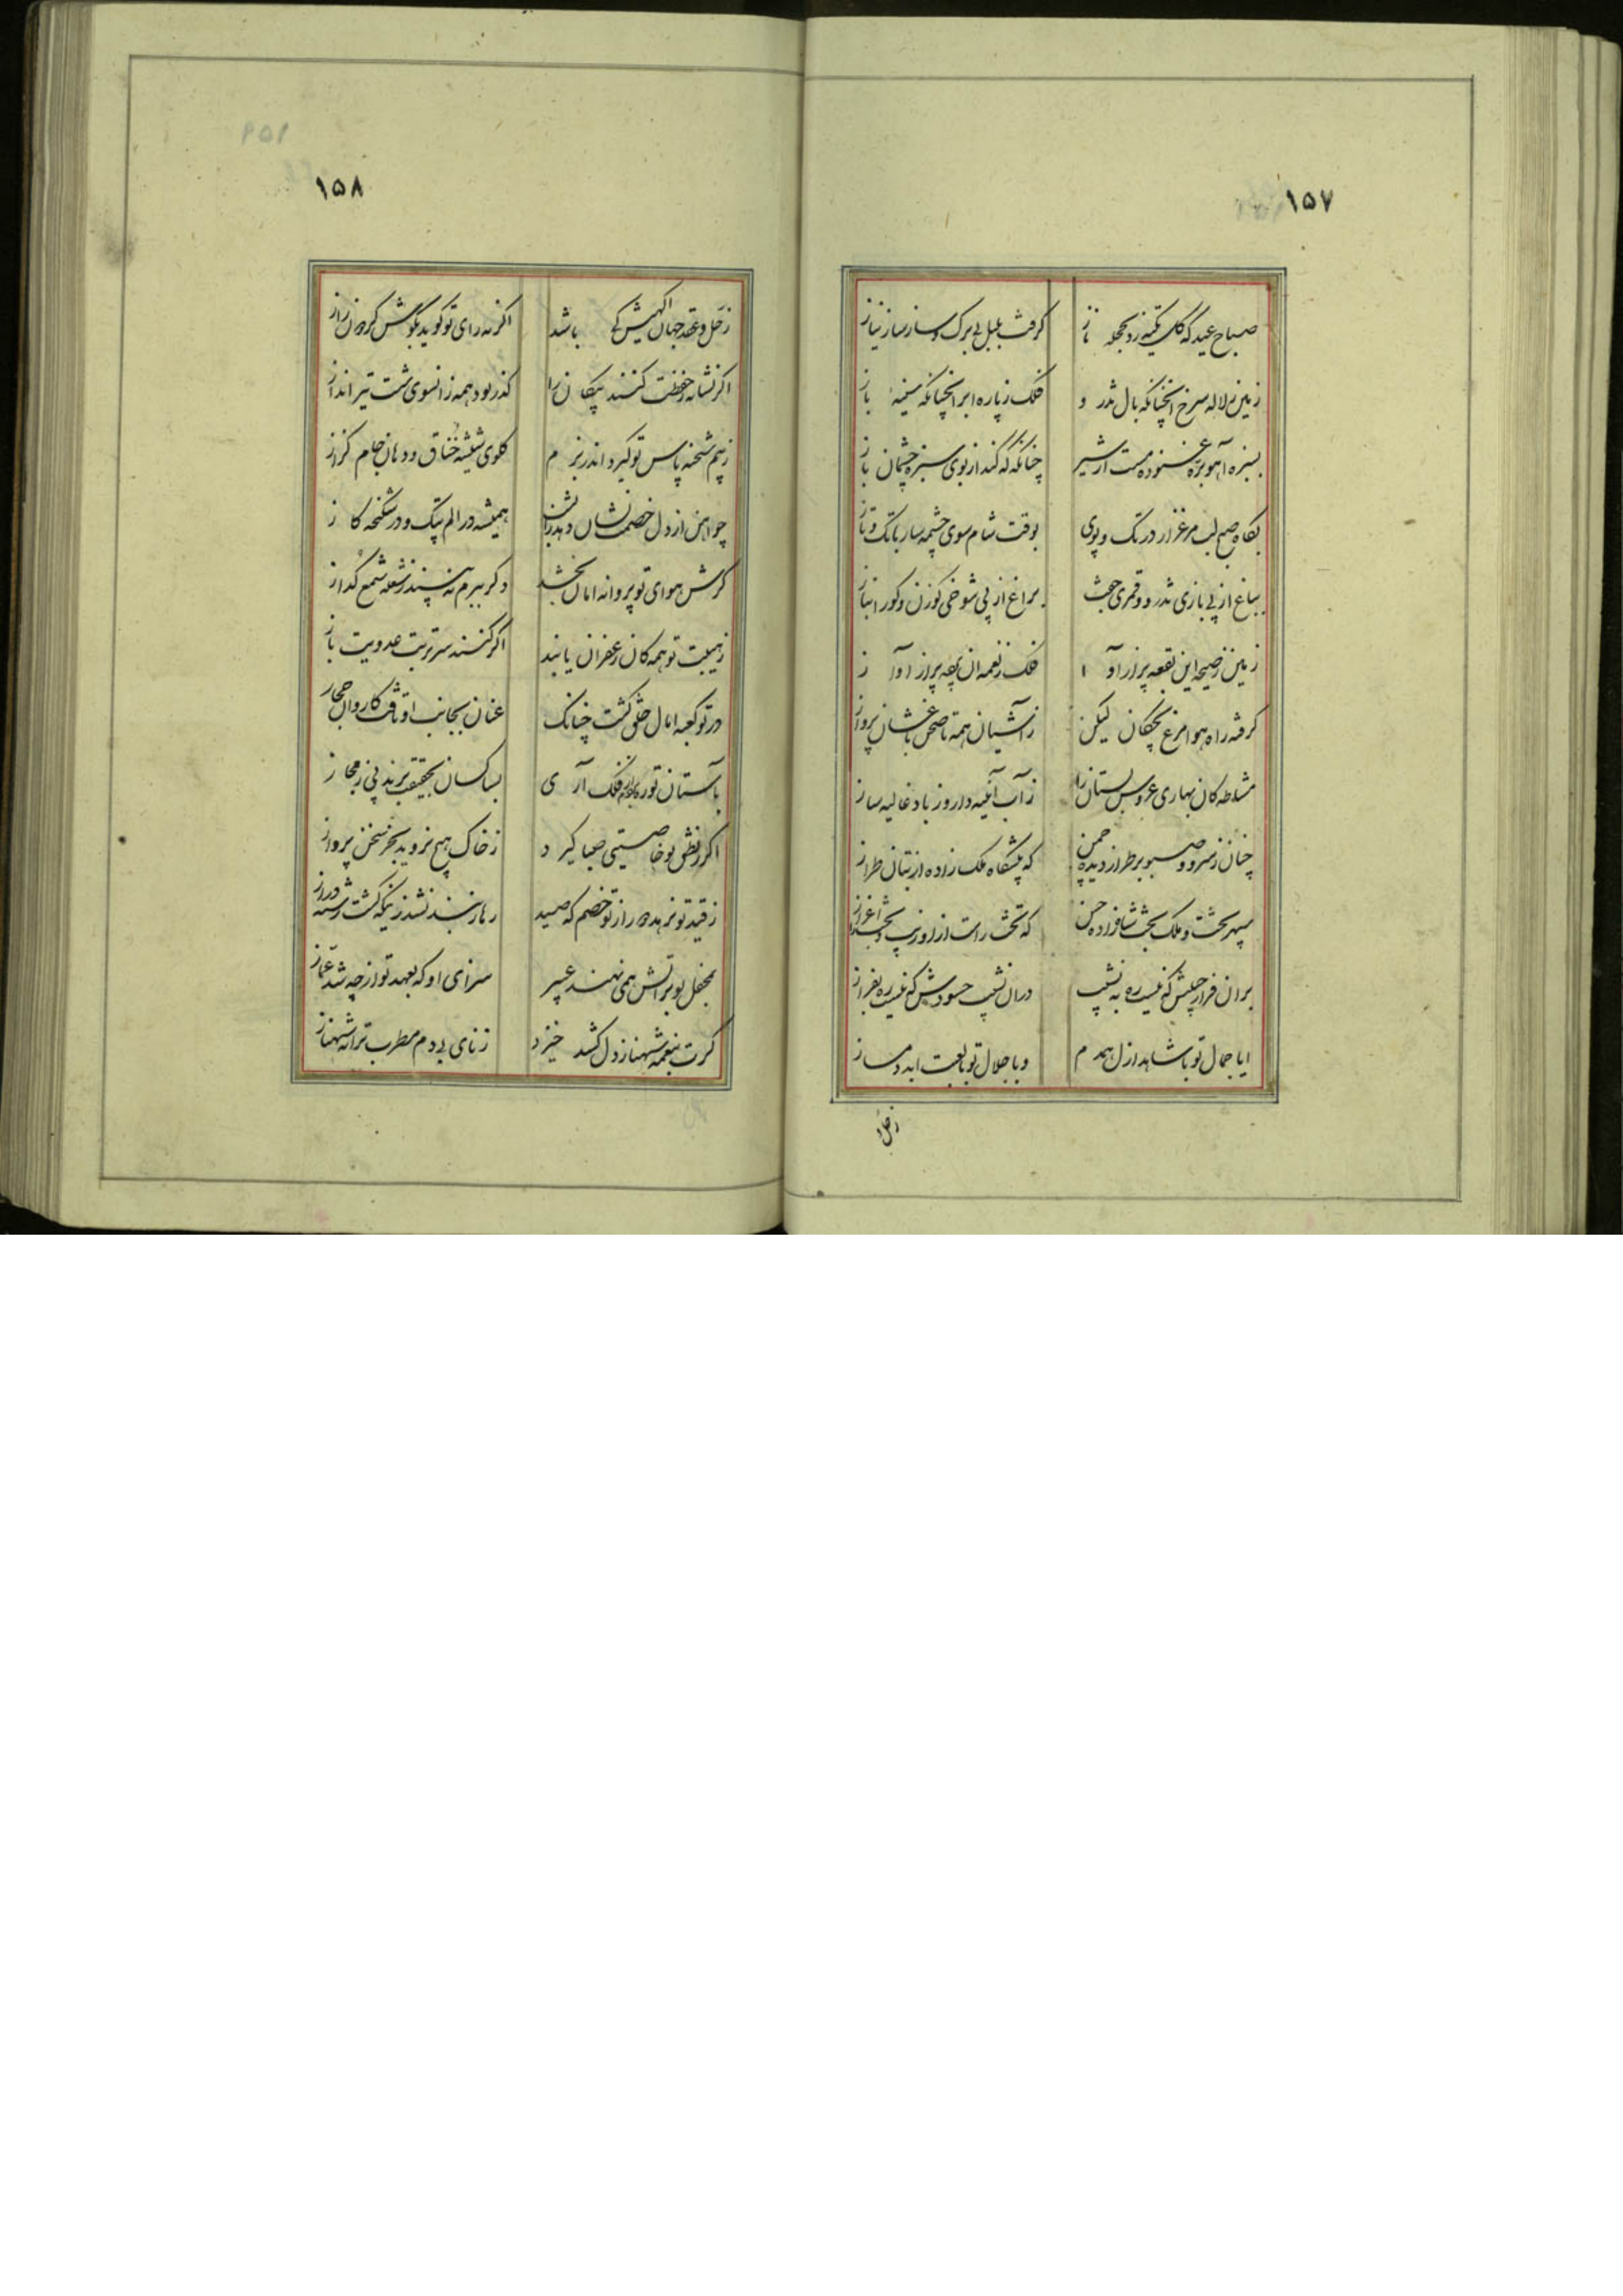 ۱۵۷
صباح عید که گل تکیه زد بحجله ناز
گرفت بلبل بی برک و ساز ساز نیاز
زمین ز لاله سرخ آنچنانکه بال تذرو
فلک ز پاره ابر آنچنانکه سینهٔ باز
بسبزه آهو بره غنوده مست از شیر
چنانکه که کند از بوی سبزه چشمان باز
بگاه صبح لب مرغزار در تک و پوی
بوقت شام سوی چشمه سار با تک و تاز
بباغ از پی بازی تذرو و قمری جفت
براغ از پی شوخی گوزن و گور انباز
زمین ز صیحه این بقعه پر از آوا
فلک ز نغمه آن پر از آواز
گرفته راه هوا مرغ بچگان لیکن
ز آشیان همه تا صحن باغشان پرواز
مشاطه کان بهاری عروس بستان را
ز آب آینه دار و ز باد غالیه ساز
چنان ز سرو و صنوبر طراز دیده چمن
که پیشگاه ملک زاده از بتان طراز
سپهر تخت و ملک بخت شاهزاده حسن
که تخت راست از او زیب و بخت را اعزاز
بران فراز جیش که نیست ره به نشیب
دران نشیب حسودش که نیست ره بفراز
ایا جمال تو با شاهد ازل همدم
و یا جلال تو با لعبت ابد دمساز
زحل و
۱۵۸
ز حل و عقد جهان آگهیش کی باشد
اگر نه رای تو گوید بگوش گردون راز
اگر نشانه حفظت کنند پیکان را
گذر بود همه زانسوی شست تیر انداز
ز بیم شحنه پاس تو گیرد اندر بزم
گلوی شیشه خناق و دهان جام کزاز
چو آهن از دل خصمت نشان دهد زانست
همیشه در الم پتک و در شکنجه کاز
گرش هوای تو پروانه امان بخشد
دگر ببزم نه بیند ز شعله شمع گداز
ز هیبت تو همه کان زعفران یابند
اگر کنند سر تربت عدویت باز
در تو کعبه آمال خلق گشت چنانک
عنان بجانب او تافت کاروان حجاز
بآستان تو ره فلک آری
بسا کسان بحقیقت برند پی ز مجاز
اگر ز نطق تو خاصیتی صبا گیرد
ز خاک هیچ نروید بجز سخن پرواز
ز قید تو نرهد راز تو خصم که صید
رها ز بند نشد زینکه گشت رشته دراز
بمحفل تو بر آتش همی نهند عبیر
سزای او که بعهد تو از چه شد غماز
گرت بنغمه شهناز دل کشد خیزد
ز نای بی دم مطرب ترانه شهناز